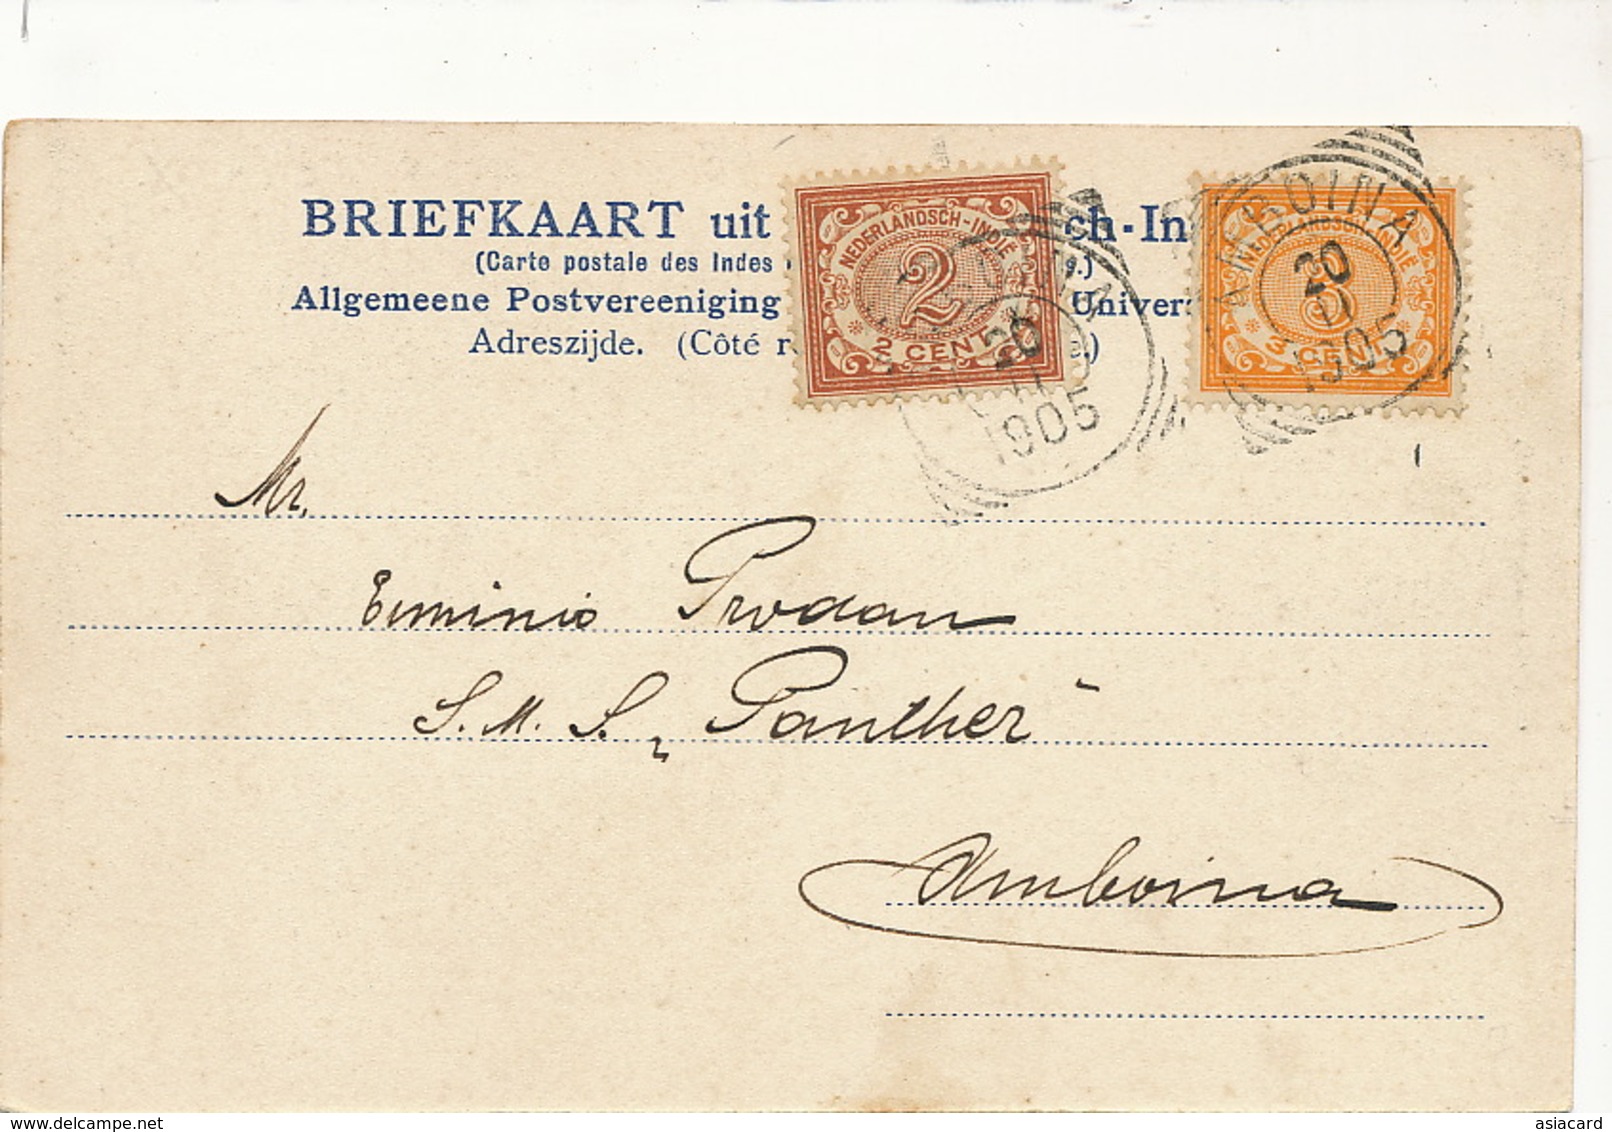 BRIEFKAART uit ch-In
(Carte postale des Indes .)
Allgemeene Postvereeniging Univers
Adreszijde. (Côté r .)
NEDERLANDSCH-INDIË
2
2 CENT
20
11
1905
AMBOINA
NEDERLANDSCH-INDIË
3
3 CENT
20
11
1905
Mr.
Erminio Prodan
S. M. S. „Panther"
Amboina
delcampe.net
asiacard